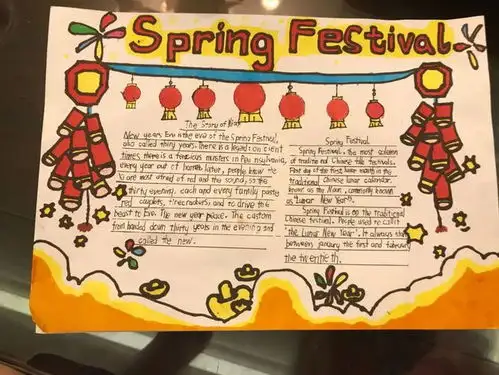 Spring Festival
The Story of Nian
New years Eve is the eve of the Spring Festival,
also called thirty years. There is a legend: on cient
times there is a ferocious monsters in
every year out of harm. Later, people know the
are most afraid of red and the sound, so the
thirty evening, each and every family paste
red couplets, firecrackers, and to drive the
beast to Eve. The new year peace. The custom
from handed down thirty years in the evening and
called the new.
Spring Festival
Spring Festival, the most solemn
of traditional Chinese the festivals.
First day of the first lunar month in the
traditional Chinese lunar calendar,
known as the Moon, commonly known
as "Lunar New Year".
Spring Festival is on the traditional
Chinese festival. People used to call it
the "Lunar New Year". It always the
between january the first and
the twentieth.